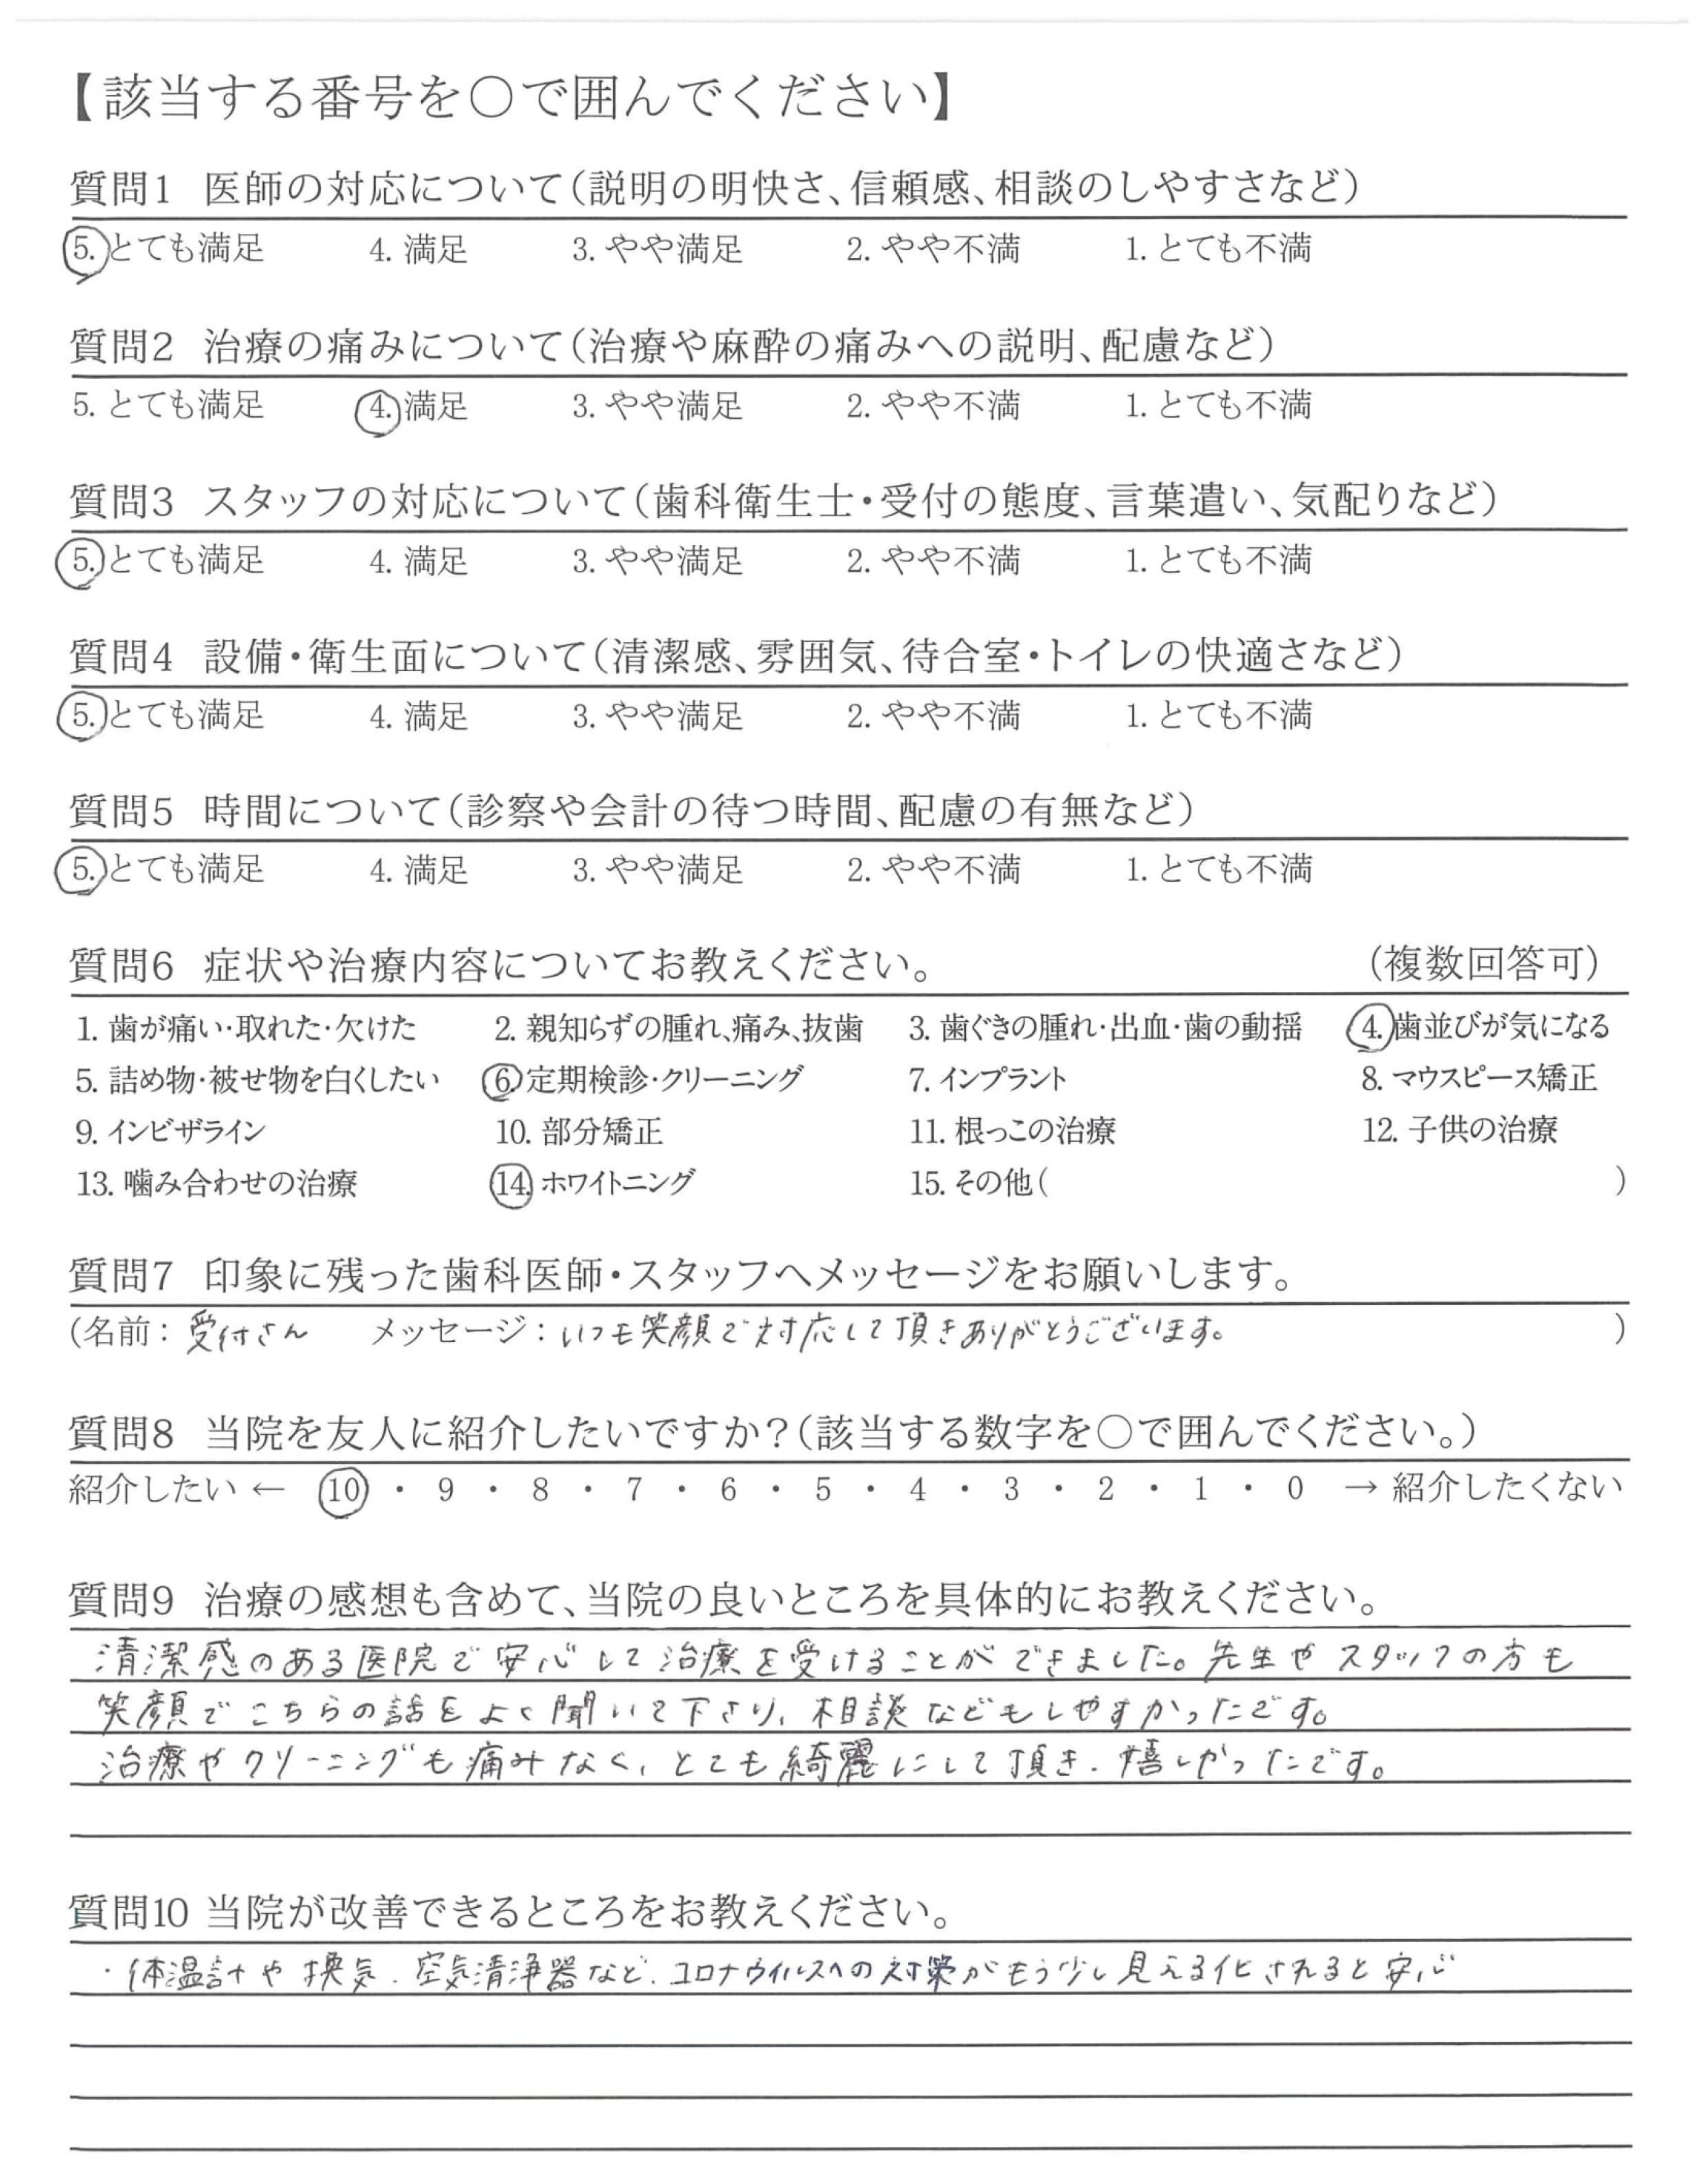 【該当する番号を○で囲んでください】
質問1 医師の対応について(説明の明快さ、信頼感、相談のしやすさなど)
5. とても満足 4. 満足 3. やや満足 2. やや不満 1. とても不満
質問2 治療の痛みについて(治療や麻酔の痛みへの説明、配慮など)
5. とても満足 4. 満足 3. やや満足 2. やや不満 1. とても不満
質問3 スタッフの対応について(歯科衛生士・受付の態度、言葉遣い、気配りなど)
5. とても満足 4. 満足 3. やや満足 2. やや不満 1. とても不満
質問4 設備・衛生面について(清潔感、雰囲気、待合室・トイレの快適さなど)
5. とても満足 4. 満足 3. やや満足 2. やや不満 1. とても不満
質問5 時間について(診察や会計の待つ時間、配慮の有無など)
5. とても満足 4. 満足 3. やや満足 2. やや不満 1. とても不満
質問6 症状や治療内容についてお教えください。 (複数回答可)
1. 歯が痛い・取れた・欠けた 2. 親知らずの腫れ、痛み、抜歯 3. 歯ぐきの腫れ・出血・歯の動揺 4. 歯並びが気になる
5. 詰め物・被せ物を白くしたい 6. 定期検診・クリーニング 7. インプラント 8. マウスピース矯正
9. インビザライン 10. 部分矯正 11. 根っこの治療 12. 子供の治療
13. 噛み合わせの治療 14. ホワイトニング 15. その他( )
質問7 印象に残った歯科医師・スタッフへメッセージをお願いします。
(名前：受付さん メッセージ：いつも笑顔で対応して頂きありがとうございます。 )
質問8 当院を友人に紹介したいですか？(該当する数字を○で囲んでください。)
紹介したい ← 10 ・ 9 ・ 8 ・ 7 ・ 6 ・ 5 ・ 4 ・ 3 ・ 2 ・ 1 ・ 0 → 紹介したくない
質問9 治療の感想も含めて、当院の良いところを具体的にお教えください。
清潔感のある医院で安心して治療を受けることができました。先生やスタッフの方も
笑顔でこちらの話をよく聞いて下さり、相談などもしやすかったです。
治療やクリーニングも痛みなく、とても綺麗にして頂き、嬉しかったです。
質問10 当院が改善できるところをお教えください。
・体温計や換気、空気清浄器など、コロナウイルスへの対策がもう少し見える化されると安心